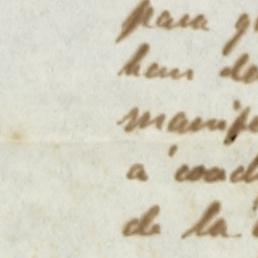 para q
han de
manife
a coad
de la